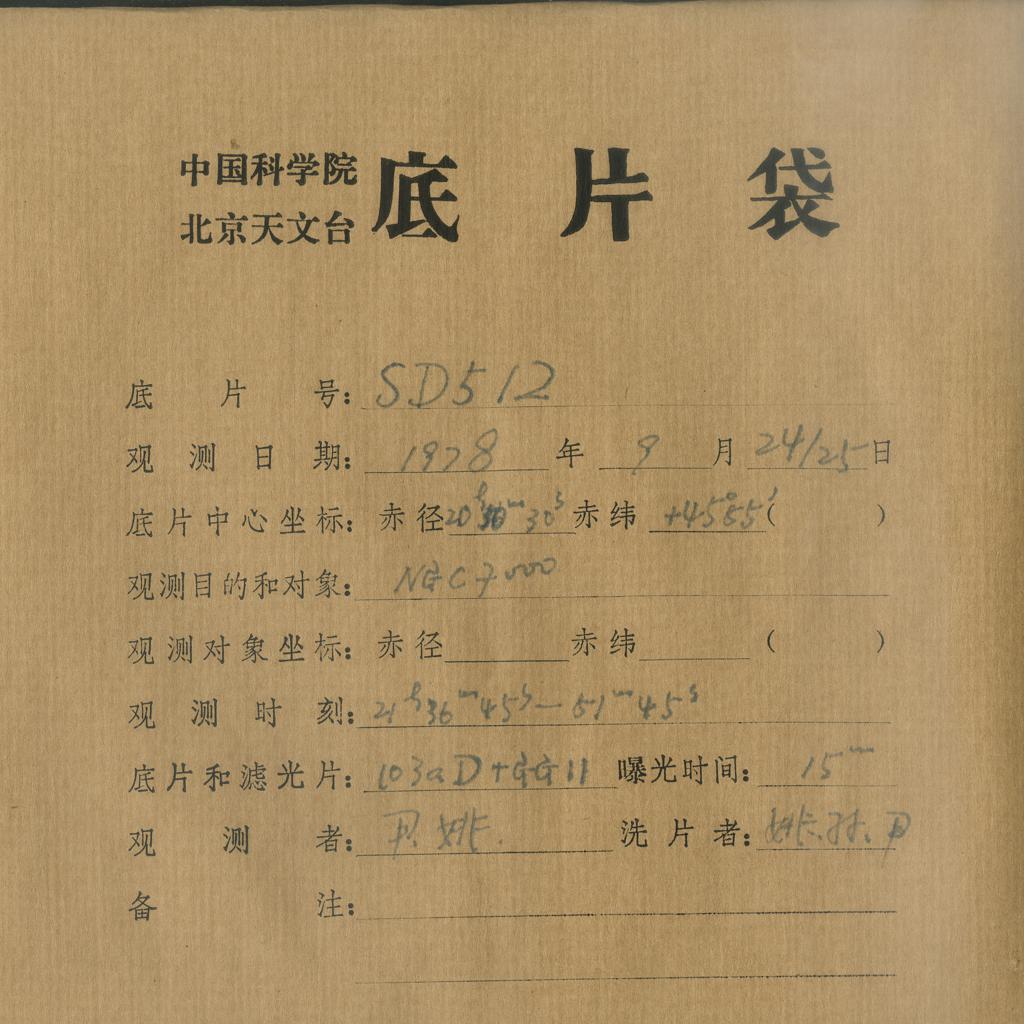 中国科学院
北京天文台
底片袋
底片号：SD512
观测日期：1978年9月24/25日
底片中心坐标：赤径20ʰ 30ˢ赤纬+45°55′（ ）
观测目的和对象：NGC7000
观测对象坐标：赤径 赤纬 （ ）
观测时刻：21ʰ36ᵐ45ˢ—51ᵐ45ˢ
底片和滤光片：103aD+GG11 曝光时间：15ᵐ
观测者：尹.姚. 洗片者：姚.孙.尹
备注：